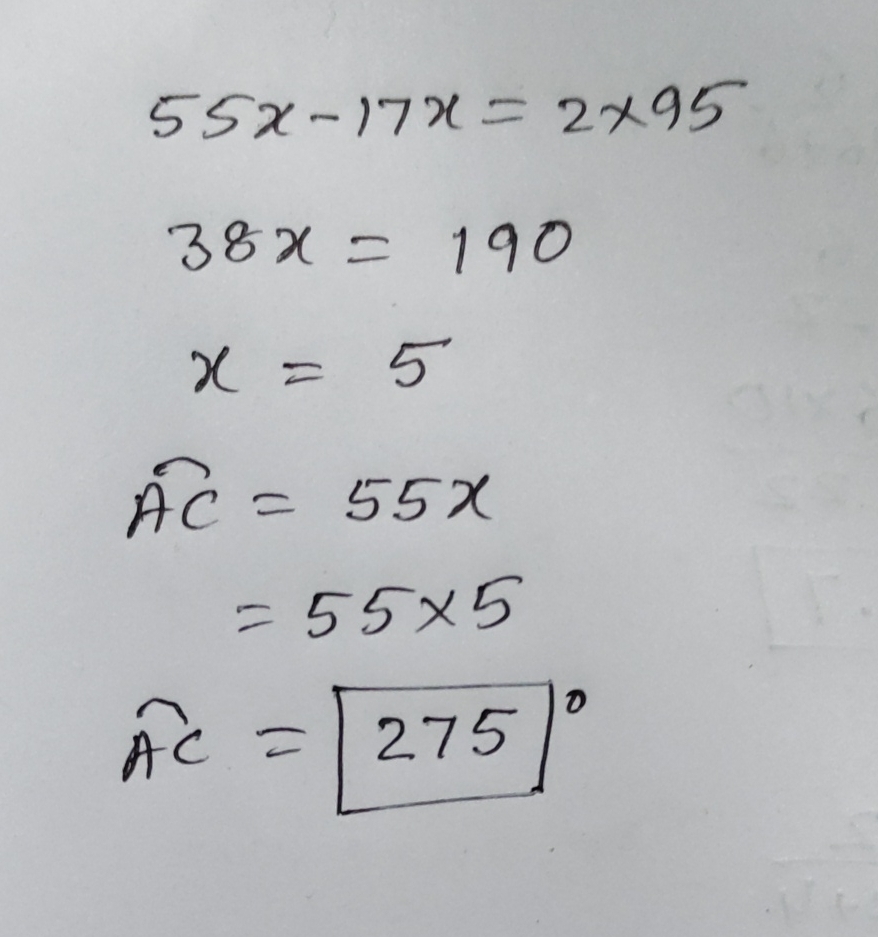 55x-17x = 2×95
38x = 190
x = 5
A͡C = 55x
= 55×5
A͡C = 275°